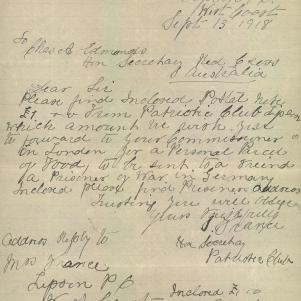 West Coast
Sept 13 1918
To
Chas A Edmunds
Hon Secretary Red Cross
Australia
Dear Sir
Please find Inclosed Postal Note
£1 from Patriotic Club
which amount we wish you
to forward to your Commissioner
in London for a Personal Parcel
of Food, to be sent to a Friend
a Prisoner of War in Germany
Inclosed please find Prisoners address
Trusting you will oblige
Yours Faithfully
Hon Secretary
Patriotic Club
Address Reply to
Mrs
P O
West Coast
Inclosed £1